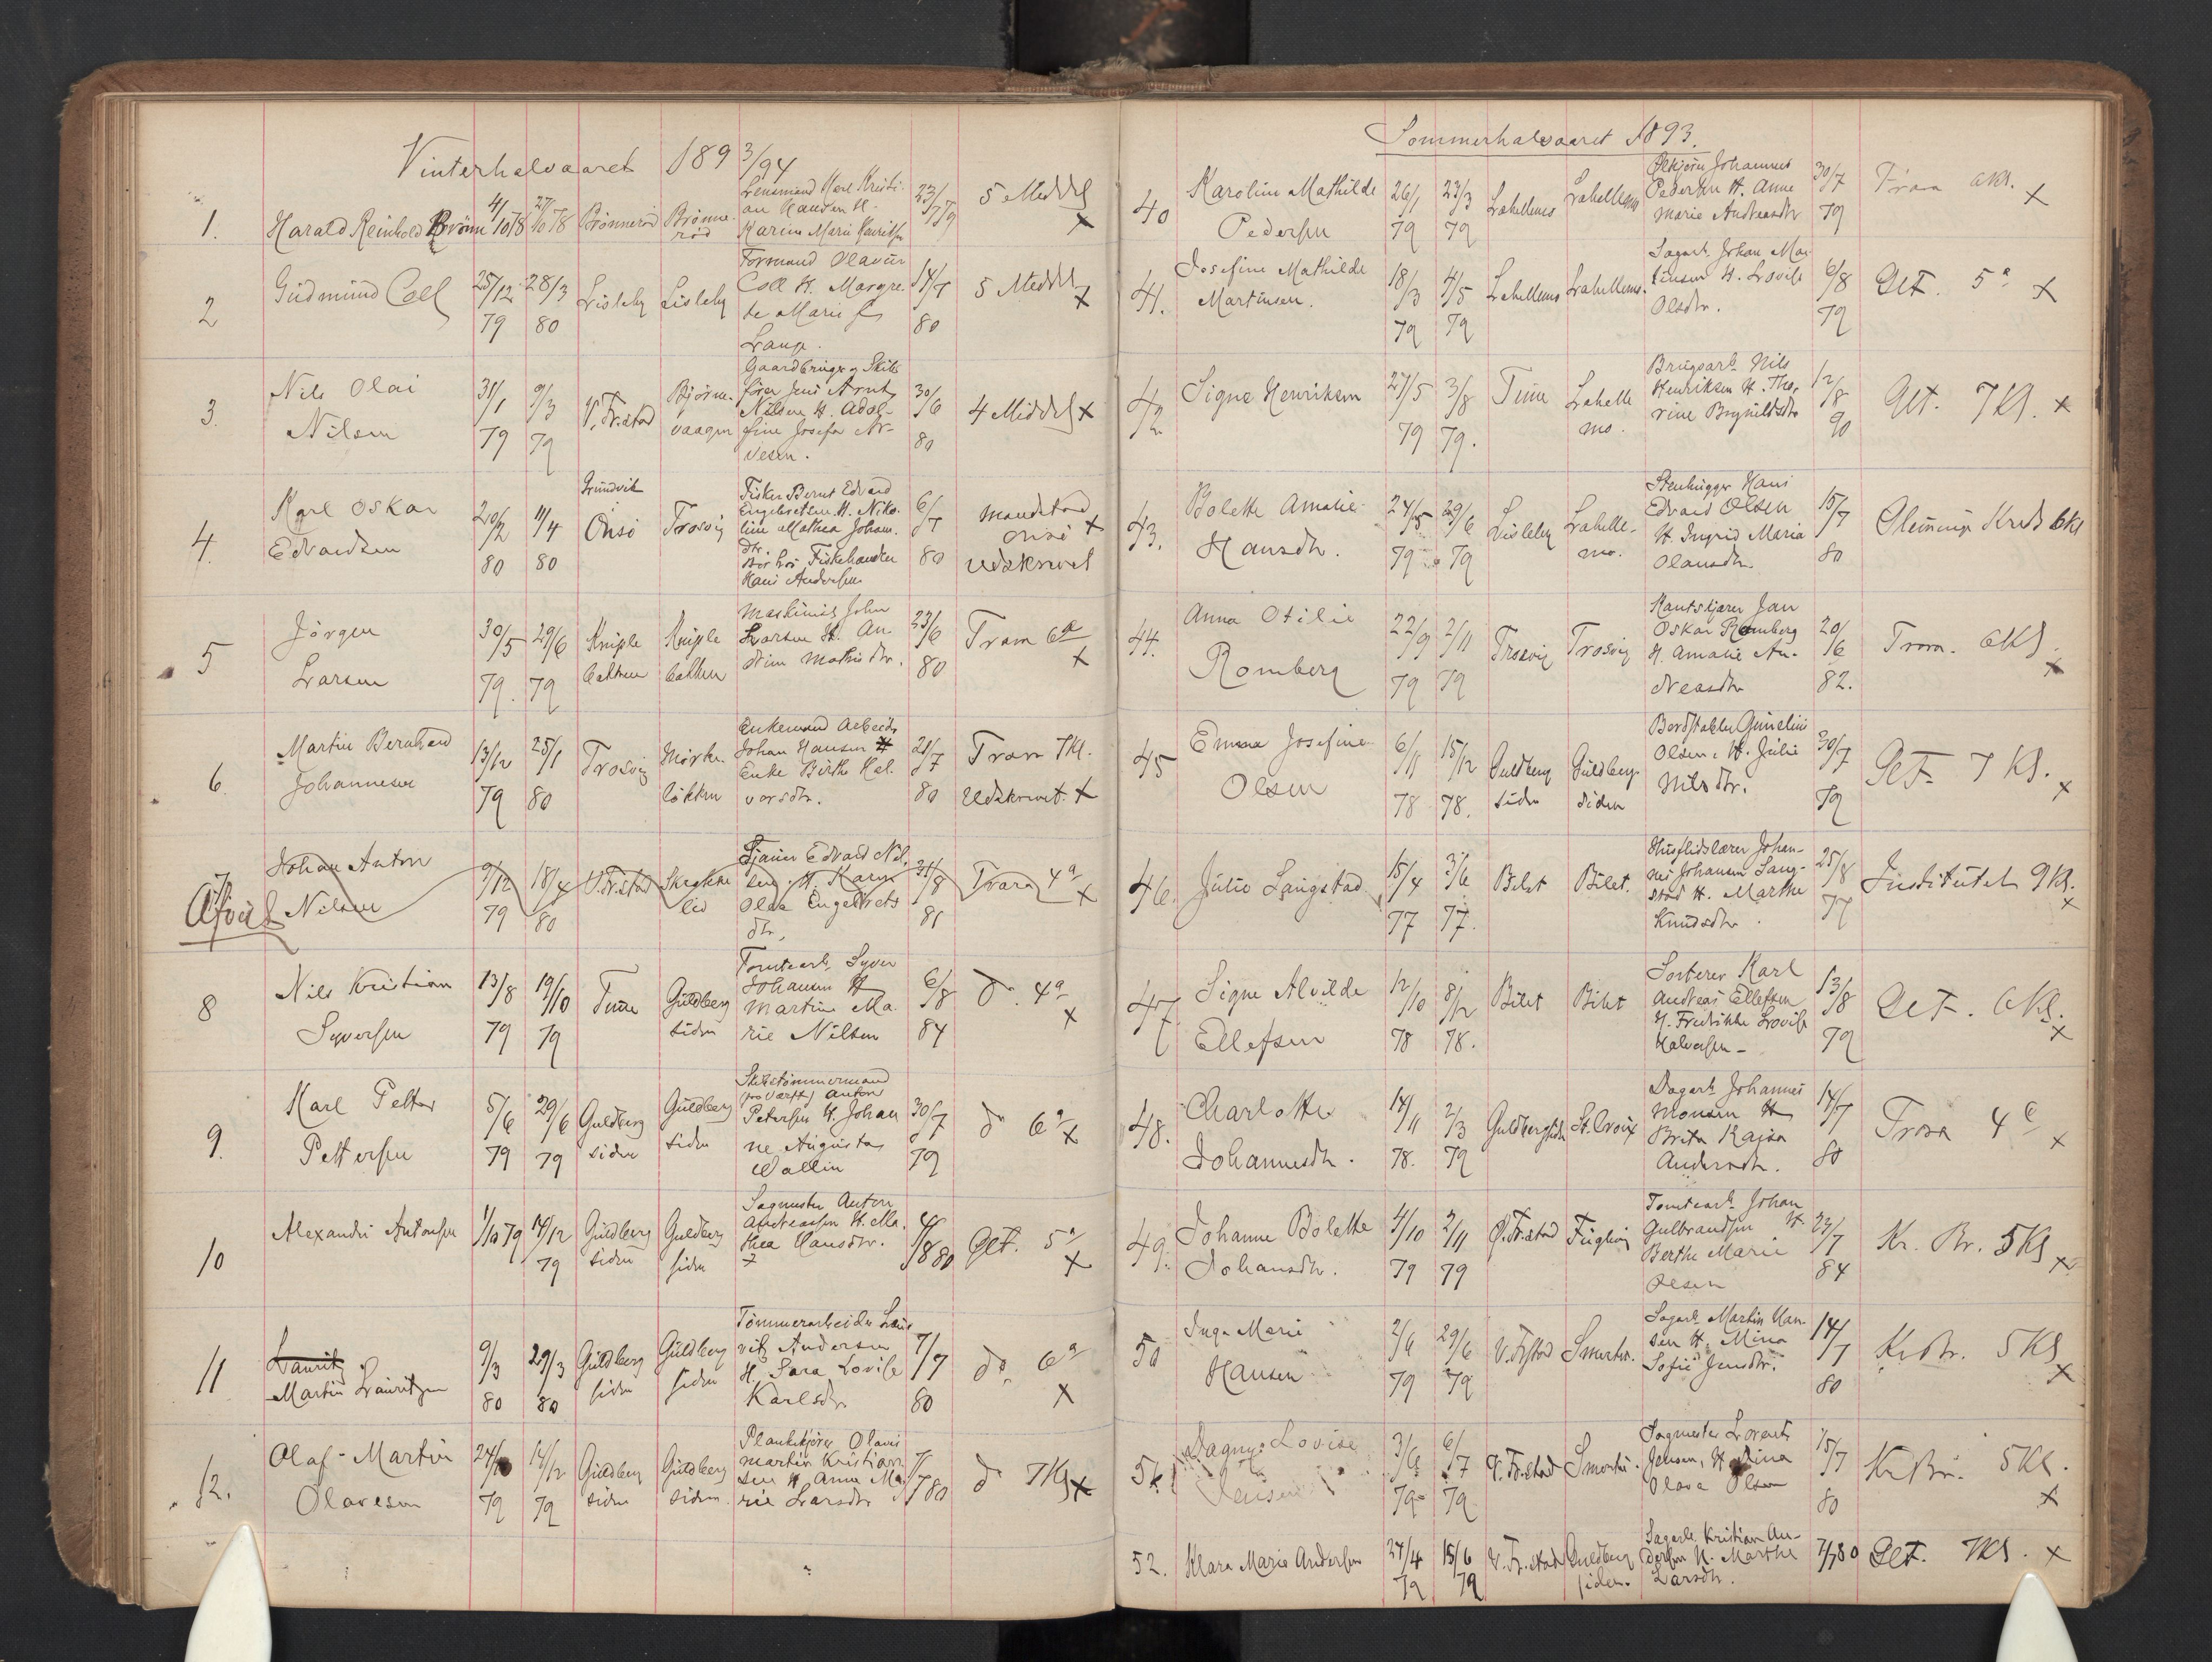 Vinterhalvaaret 1893/94
1. Harald Reinhold Brönn 4/10 78 27/10 78 Brönnerö Brönne-
röd
Lensmand Karl Kristi-
an Hansen H.
Karine Marie Henriks
23/7 79
5 Middels
x
2 Gudmund Coll
25/12 79 28/3 80 Lisleby Lisleby
Formand Olavur
Coll H. Margre-
te Marie f
Lange.
14/7 80
5 Middels
x
3. Nils Olai
Nilsen
31/1 79 9/3 79 V. Fr.stad Björne-
vaagen
Gaardbruger og Skibs
fører Jens Arnt
Nilsen H. Adol-
fine Josefa Ar-
vesen.
30/6 80
4 Middels x
4. Karl Oskar
Edvardsen
20/2 80 11/4 80
Grundvik
Onsö Trosvig
Fisker Bernt Edvard
Engebretsen H. Niko-
line Mathea Joham.
dtr.
Bor hos Fiskehandler
Hans Andersen
6/7 80
Onsö x
Udskrevet
5 Jörgen
Larsen
30/5 79. 29/6 79 Kniple
bakken
Kniple
bakken
Maskinist John
Larsen H. An-
drine Mathisdtr.
23/6 80
Trara 6a
x
6. Martin Bernhard
Johannesen
13/12 79 25/1 80 Trosvig Mörke-
lökken
Enkemand Arbeids
Johan Hansen H
Enke Birthe Hal-
vorsdtr.
21/7 80
Trara 7Kl.
Udskrevet. x
7
Johan Anton
Nilsen
9/12 79 18/4 80 V. Fr.stad Skrekke
lid
Tjener Edvard Nil-
sen H. Karen
Olea Engebrets
dtr.
31/8 81
Trara 4a
x
8 Nils Kristian
Syversen
13/8 79 19/10 79 Tune Guldberg
siden
Tomtearb. Syver
Johansen H
Martine Ma-
rie Nilsen
6/8 84
do. 4a
x
9. Karl Petter
Pettersen
5/6 79 29/6 79 Guldberg
siden
Guldberg
siden
Skibstömmermand
(paa Værft) Anton
Petersen H. Johan
ne Augusta
Wallin
30/7 79
do 6a
x
10 Alexander Antonsen
1/10 79 14/12 79 Guldberg
siden
Guldberg
siden
Sagmester Anton
Andreassen H. Ma-
thea Hansdtr.
4/8 80
Glt. 5a
x
11 Lauritz
Martin Lauritzen
9/3 80 29/3 80 Guldberg
siden
Guldberg
siden
Tömmerarbeider Lau
ritz Andersen
H. Sara Lovise
Karlsdtr
7/7 80
do 6a
x
12. Olaf Martin
Olavesen
24/10 79 14/12 79 Guldberg
siden
Guldberg
siden
Plankekjörer Olaves
Martin Kristian
sen H. Anne Ma-
rie Larsdtr
7/7 80
do 7Kl x
Sommerhalvaaret 1893.
40 Karoline Mathilde
Pedersen
26/1 79 23/3 79 Labellemo Labellemo
Johannes
Pedersen H. Anne
Marie Andreasdtr
30/7 79
Trara 6Kl.
x
41. Josefine Mathilde
Martinsen.
18/3 79 4/5 79 Labellemo Labellemo.
Sagarb. Johan Mar-
tinsen H. Lovise
Olsdtr.
6/8 79
Glt. 5a x
42 Signe Henriksen
27/5 79 3/8 79. Tune Labelle
mo.
Brugsarb. Nils
Henriksen H. Tho-
rine Brynildsdtr
12/8 90
Glt. 7Kl. x
43. Bolette Amalie
Hansdtr.
24/5 79 29/6 79 Lisleby Labelle-
mo.
Stenhugger Hans
Edvard Olsen
H Ingrid Maria
Olausdtr
15/7 80
Glemminge Kreds 6Kl
44. Anna Otilie
Romberg
22/9 79 2/11 79 Trosvig Trosvig
Kantskjærer Jan
Oskar Romberg
H. Amalie An-
dreasdtr
20/6 82.
Trara. 6Kl.
x
45 Emma Josefine
Olsen
6/11 78 15/12 78. Guldberg
siden
Guldberg
siden
Bordstabler Gunelius
Olsen, H. Julie
Nilsdtr.
30/7 79
Glt 7 Kl.
x
46. Julie Langstad
15/4 77 3/6 77. Bilet Bilet.
Husflidslærer Johan-
nes Johansen Lang-
stad H. Marthe
Knudsdtr.
25/8 77
Institutet 9Kl.
x
47 Signe Alvilde
Ellefsen
12/10 78 8/12 78. Bilet Bilet
Sorterer Karl
Andreas Ellefsen
H. Fredrikke Lovise
Halvorsen
13/8 79
Glt. 6Kl.
x
48. Charlotte
Johannesdtr.
14/11 78. 2/3 79 Guldbergsiden St. Croix
Dagarb. Johannes
Monsen H
Brita Kajsa
Andersdtr.
14/7 80
Trara 4c
x
49. Johanne Bolette
Johansdtr.
4/10 79 2/11 79 Ø. Fr.stad Fuglevig
Tomtearb. Johan
Gulbrandsen H.
Berthe Marie
Olsen
23/7 84
Kr. Br. 5Kl
x
50 Inga Marie
Hansen
2/6 79 29/6 79 V. Frstad Smertu.
Sagarb. Martin Han-
sen H. Mina
Sofie Jensdtr.
14/7 80
Kr Br. 5Kl
x
51 Dagny Lovise
Jensen
3/6 79 6/7 79 V. Fr.stad Smertu.
Sagmester Lorents
Jensen, H. Mina
Olava Olsen
15/7 80
Kr Br. 5Kl.
x
52. Klara Marie Andersen
27/4 79 15/6 79 V. Fr.stad Guldberg
siden.
Sagarb. Kristian An-
dersen H. Marthe
Larsdtr.
7/7 80
Glt. 7Kl. x